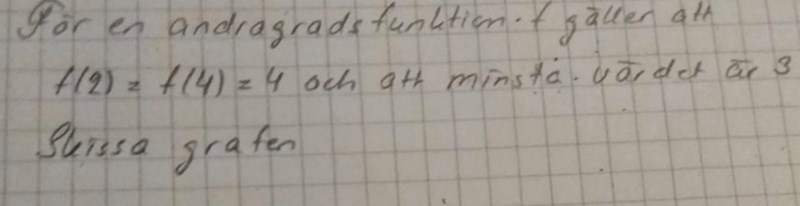 För en andragradsfunktion f gäller att
f(2) = f(4) = 4 och att minsta värdet är 3
Skissa grafen